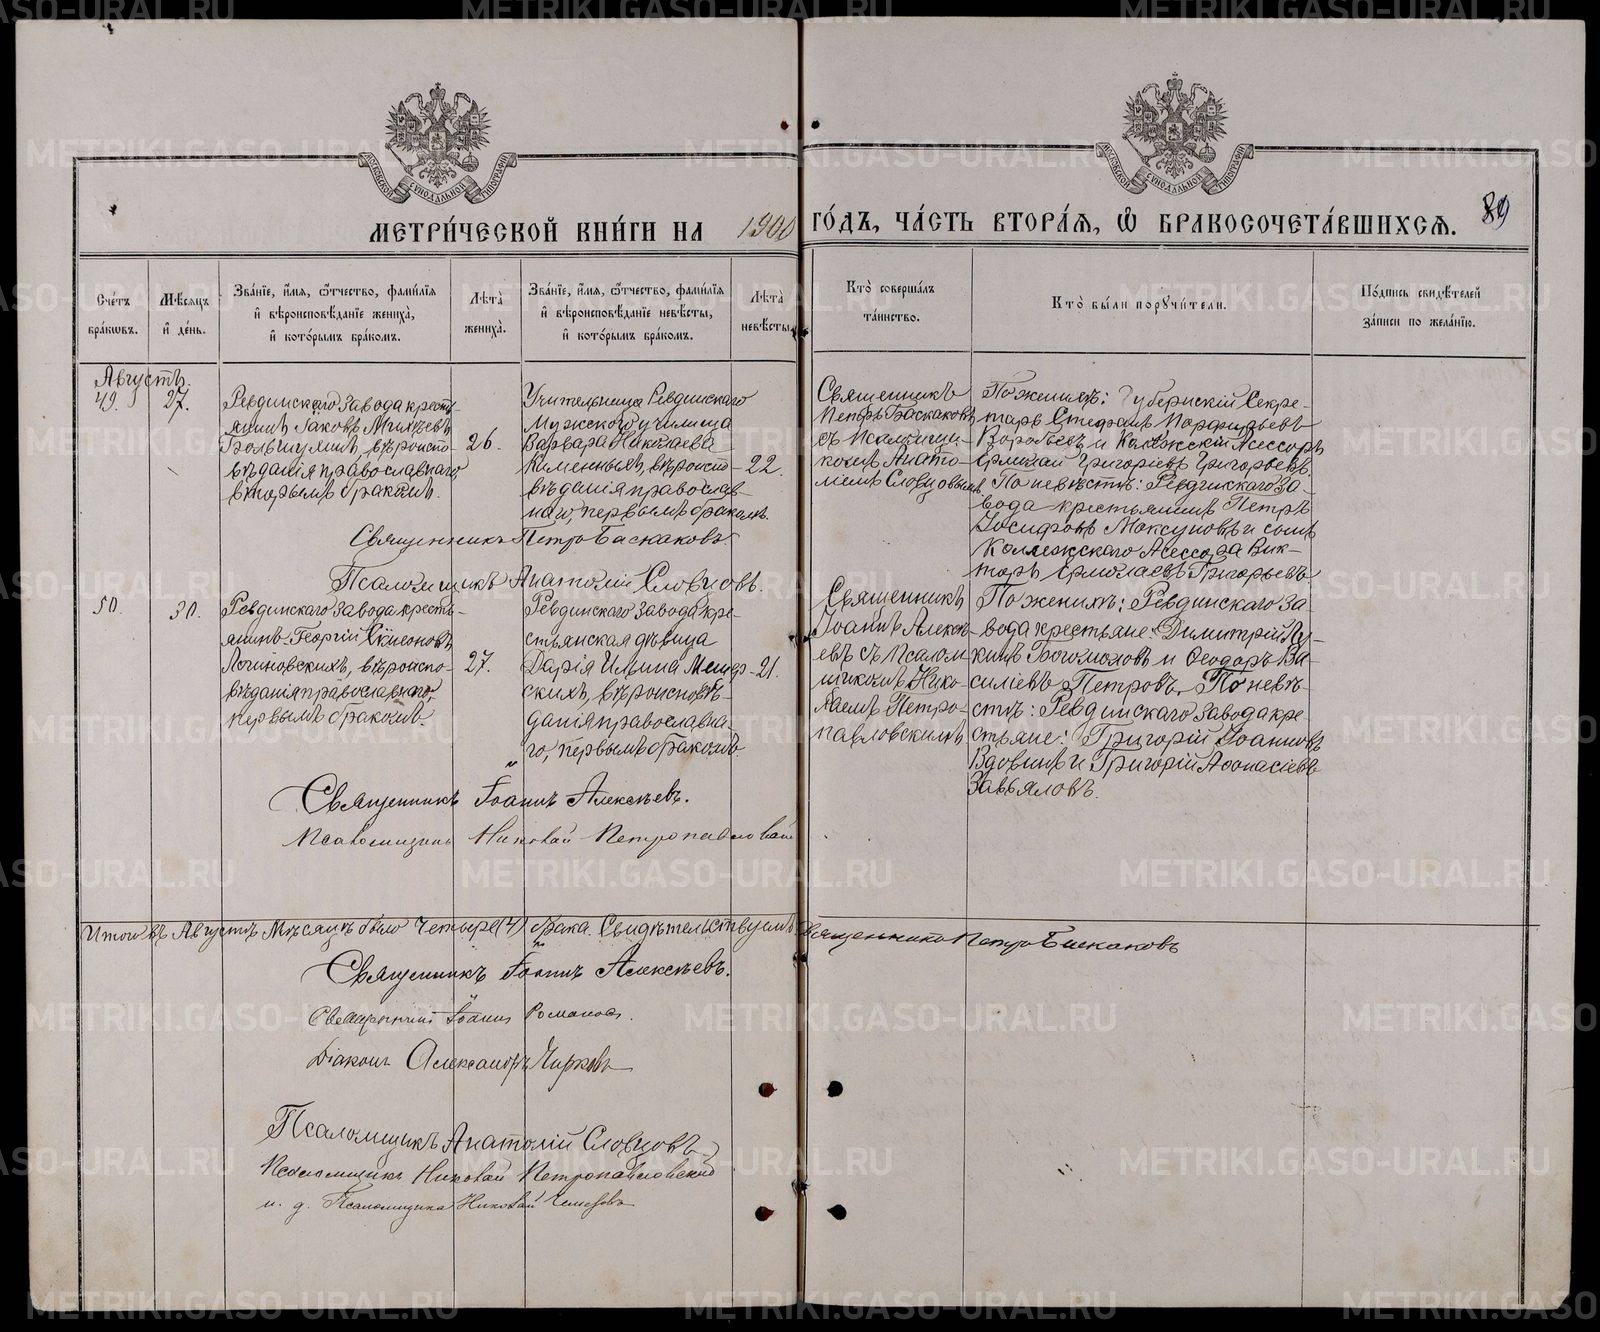 МЕТРИ́ЧЕСКОЙ КНИ́ГИ НА 1900 ГО́ДЪ, ЧА́СТЬ ВТОРА́Я, Ѡ БРАКОСОЧЕТА́ВШИХСЯ.
89
Сче́тъ бра́ковъ.
Мѣ́сяцъ и де́нь.
Зва́нїе, и́мя, ѻ́тчество, фами́лїя и вѣроисповѣ́данїе жениха̀, и кото́рымъ бра́комъ.
Лѣта̀ жениха̀.
Зва́нїе, и́мя, ѻ́тчество, фами́лїя и вѣроисповѣ́данїе невѣ́сты, и кото́рымъ бра́комъ.
Лѣта̀ невѣ́сты.
Кто̀ соверша́лъ та́инство.
Кто̀ бы́ли порꙋчи́тели.
По́дпись свидѣ́телей за́писи по жела́нїю.
Августъ.
49.
27.
Ревдинскаго завода кресть-
янинъ Іаковъ Михѣевъ
Большухинъ, вѣроиспо-
вѣданія православнаго,
вторымъ бракомъ.
26.
Учительница Ревдинскаго
Мужского училища
Варвара Николаева
Каменныхъ, вѣроиспо-
вѣданія православ-
наго, первымъ бракомъ.
22.
Священникъ
Петръ Баскаковъ
съ псаломщи-
комъ Анато-
ліемъ Словцовымъ
По женихѣ: Губернскій Секре-
тарь Стефанъ Порфирьевъ
Воробьевъ и Коллежскій Ассесоръ
Ермолай Григорьевъ Григорьевъ.
По невѣстѣ: Ревдинскаго за-
вода крестьянинъ Петръ
Іосифовъ Максуновъ и сынъ
Коллежскаго Ассесора Вик-
торъ Ермолаевъ Григорьевъ.
Священникъ Петръ Баскаковъ.
Псаломщикъ Анатолій Словцовъ.
50.
30.
Ревдинскаго завода кресть-
янинъ Георгій Симеоновъ
Логиновскихъ, вѣроиспо-
вѣданія православнаго,
первымъ бракомъ.
27.
Ревдинскаго завода кре-
стьянская дѣвица
Дарія Ильина
скихъ, вѣроисповѣ-
данія православна-
го, первымъ бракомъ.
21.
Священникъ
Іоаннъ Алексѣ-
евъ съ псалом-
щикомъ Нико-
лаемъ Петро-
павловскимъ
По женихѣ: Ревдинскаго за-
вода крестьяне: Димитрій Лу-
кинъ Богомоловъ и Ѳеодоръ Ва-
силіевъ Петровъ. По невѣ-
стѣ: Ревдинскаго завода кре-
стьяне: Григорій Іоанновъ
Вдовинъ и Григорій Аѳонасіевъ
Завьяловъ.
Священникъ Іоаннъ Алексѣевъ.
Псаломщикъ Николай Петропавловскій
Итого въ Августѣ Мѣсяцѣ было четыре (4) брака. Свидѣтельствуемъ: Священникъ Петръ Баскаковъ
Священникъ Іоаннъ Алексѣевъ.
Священникъ Іоаннъ Романовъ.
Діаконъ Александръ Чирковъ
Псаломщикъ Анатолій Словцовъ
Псаломщикъ Николай Петропавловскій
и. д. Псаломщика Николай
METRIKI.GASO-URAL.RU